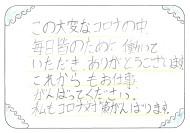 この大変なコロナの中
毎日皆のために働いて
いただき、ありがとうございます
これからもお仕事
がんばってください。
私もコロナ対策がんばります。